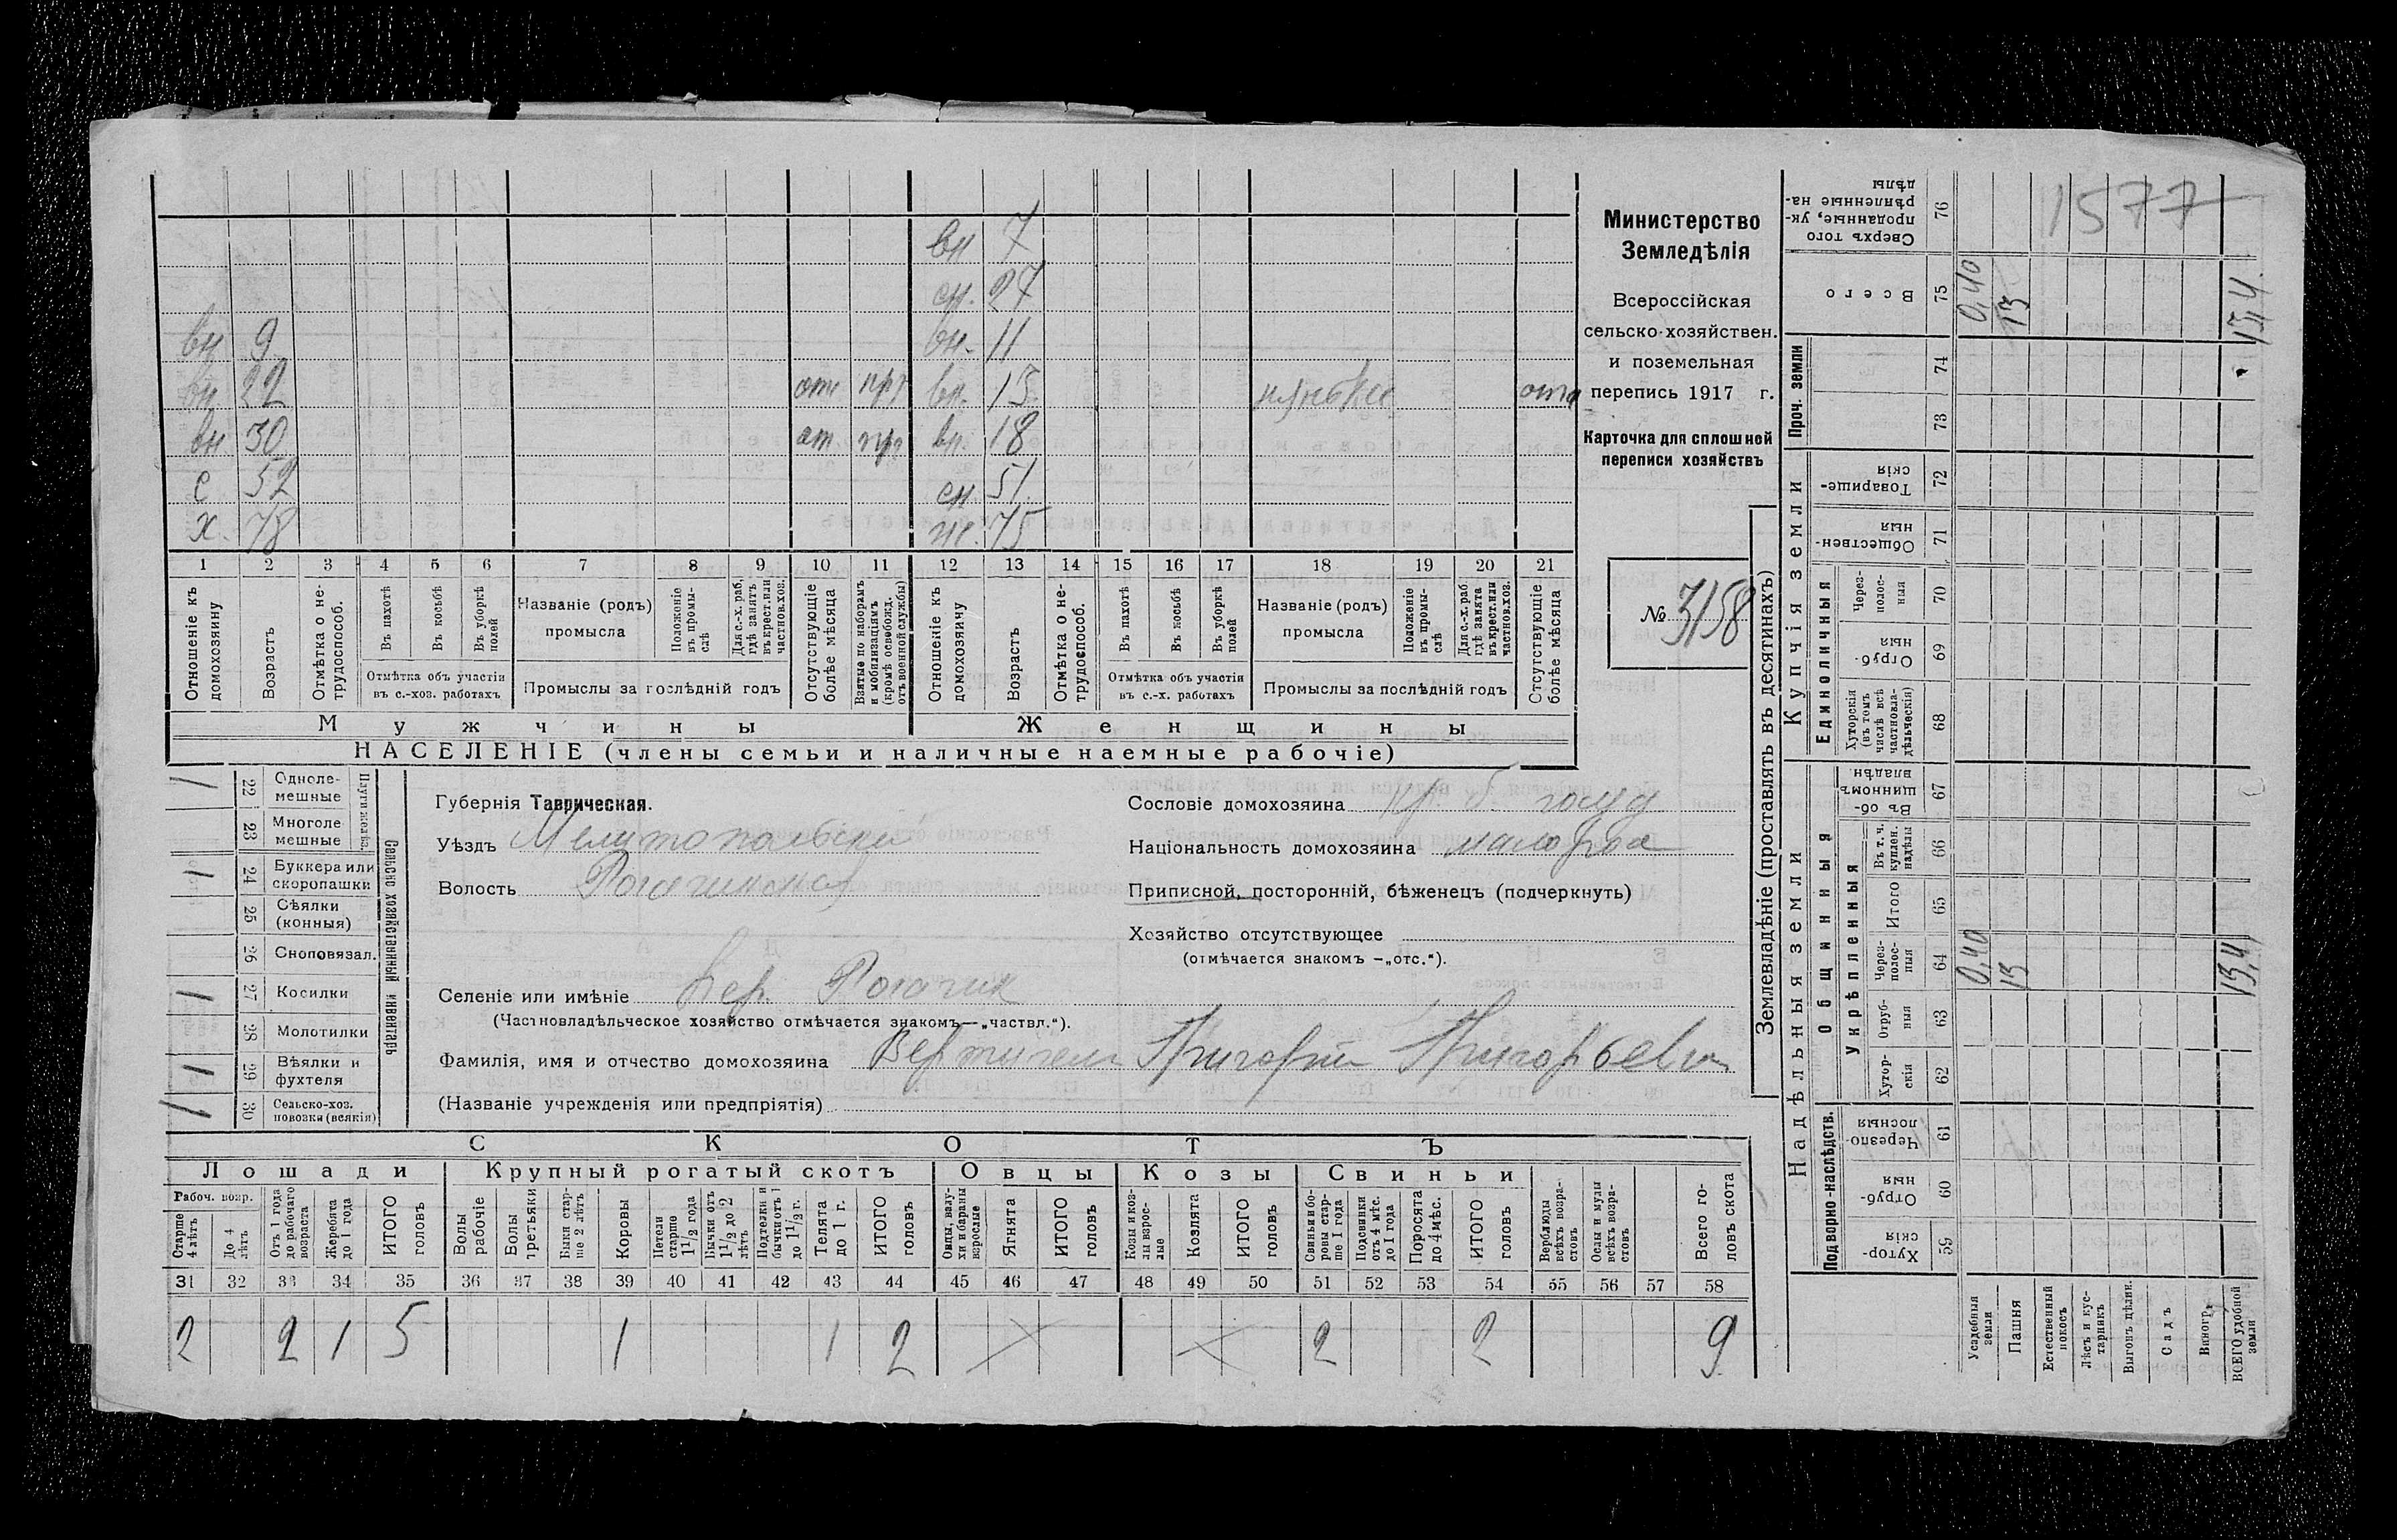 1577
Министерство
Земледѣлія
Всероссійская
сельско-хозяйствен.
и поземельная
перепись 1917 г.
Карточка для сплошной
переписи хозяйствъ
№ 3158
вн 7
сн. 27
вн 9 вн. 11
вн 22 отс вн. 13 нянька отс
вн. 30 от вн. 18
с 52 сн. 51
х. 78 ж. 75
1 2 3 4 5 6 7 8 9 10 11 12 13 14 15 16 17 18 19 20 21
Отношеніе къ домохозяину
Возрастъ
Отмѣтка о не-трудоспособ.
Въ пахотѣ
Въ косьбѣ
Въ уборкѣ полей
Отмѣтка объ участіи въ с.-хоз. работахъ
Названіе (родъ) промысла
Положеніе въ промы-слѣ
Для с.-х. раб. гдѣ занятъ въ крест. или частнов. хоз.
Промыслы за послѣдній годъ
Отсутствующіе болѣе мѣсяца
Взятые по наборамъ и мобилизаціямъ (кромѣ освобожд. отъ военной службы)
Отношеніе къ домохозяину
Возрастъ
Отмѣтка о не-трудоспособ.
Въ пахотѣ
Въ косьбѣ
Въ уборкѣ полей
Отмѣтка объ участіи въ с.-х. работахъ
Названіе (родъ) промысла
Положеніе въ промы-слѣ
Для с.-х. раб. гдѣ занята въ крест. или частнов. хоз.
Промыслы за послѣдній годъ
Отсутствующіе болѣе мѣсяца
Мужчины Женщины
НАСЕЛЕНІЕ (члены семьи и наличные наемные рабочіе)
1 22 Одноле-мешные
23 Многоле-мешные
1 24 Буккера или скоропашки
25 Сѣялки (конныя)
26 Сноповязал.
1 27 Косилки
28 Молотилки
1 29 Вѣялки и фухтеля
1 30 Сельско-хоз. повозки (всякія)
Сельско хозяйственный инвентарь
Губернія Таврическая.
Уѣздъ Мелитопольскій
Волость
Сословіе домохозяина
Національность домохозяина
Приписной, посторонній, бѣженецъ (подчеркнуть)
Хозяйство отсутствующее
(отмѣчается знакомъ —„отс.“).
Селеніе или имѣніе Вер. Рогачик
(Частновладѣльческое хозяйство отмѣчается знакомъ—„частвл.“).
Фамилія, имя и отчество домохозяина Григорій Григорьевич
(Названіе учрежденія или предпріятія)
СКОТЪ
Лошади Крупный рогатый скотъ Овцы Козы Свиньи
Рабоч. возр.
Старше 4 лѣтъ
До 4 лѣтъ
Отъ 1 года до рабочаго возраста
Жеребята до 1 года
ИТОГО головъ
Волы рабочіе
Волы третьяки
Быки стар-ше 2 лѣтъ
Коровы
Нетели старше 1 1/2 года
Бычки отъ 1 1/2 до 2 лѣтъ
Подтелки и бычки отъ 1 до 1 1/2 г.
Телята до 1 г.
ИТОГО головъ
Овцы, валу-хи и бараны взрослые
Ягнята
ИТОГО головъ
Козы и коз-лы взрос-лые
Козлята
ИТОГО головъ
Свиньи и бо-ровы стар-ше 1 года
Подсвинки отъ 4 мѣс. до 1 года
Поросята до 4 мѣс.
ИТОГО головъ
Верблюды всѣхъ возра-стовъ
Ослы и мулы всѣхъ возра-стовъ
Всего го-ловъ скота
31 32 33 34 35 36 37 38 39 40 41 42 43 44 45 46 47 48 49 50 51 52 53 54 55 56 57 58
2 2 1 5 1 1 2 2 2 9
Землевладѣніе (проставлять въ десятинахъ)
Надѣльныя земли
Купчія земли
Проч. земли
Подворно-наслѣдств.
Общинныя
Укрѣпленныя
Единоличныя
Сверхъ того проданные, ук-рѣпленные на-дѣлы 76
Всего 75 0,40 13 13,4
74
73
Товарище-скія 72
Обществен-ныя 71
Через-полос-ныя 70
Отруб-ныя 69
Хуторскія (въ томъ числѣ всѣ частновла-дѣльческія) 68
Въ об-щинномъ владѣн. 67
Въ т. ч. куплен. надѣлы 66
Итого 65
Через-полос-ныя 64 0,40 13 13,4
Отруб-ныя 63
Хутор-скія 62
Черезпо-лосныя 61
Отруб-ныя 60
Хутор-скія 59
Усадебная земля
Пашня
Естественный покосъ
Лѣсъ и кус-тарникъ
Выгонъ дѣлин.
Садъ
Виногр.
ВСЕГО удобной земли